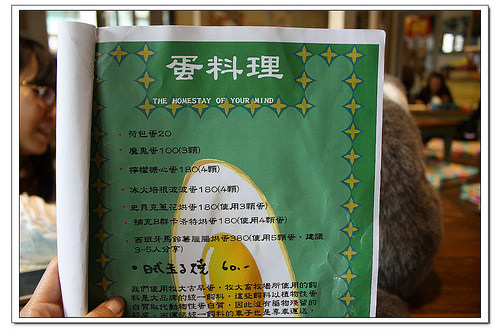 蛋料理
THE HOMESTAY OF YOUR MIND
荷包蛋20
魔鬼蛋100(3顆)
檸檬糖心蛋180(4顆)
冰火培根波波蛋180(4顆)
史貝克蔥花烘蛋180(使用3顆蛋)
補充B群卡洛特烘蛋180(使用4顆蛋)
西班牙馬鈴薯臘腸烘蛋380(使用5顆蛋，建議
3-5人分享)
日式玉子燒 60.-
我們使用牧大古早蛋，牧大畜牧場所使用的飼
料是大品牌的統一飼料，這些飼料以植物性蛋
白質取代動物性蛋白質，因此沒有藥物殘留的